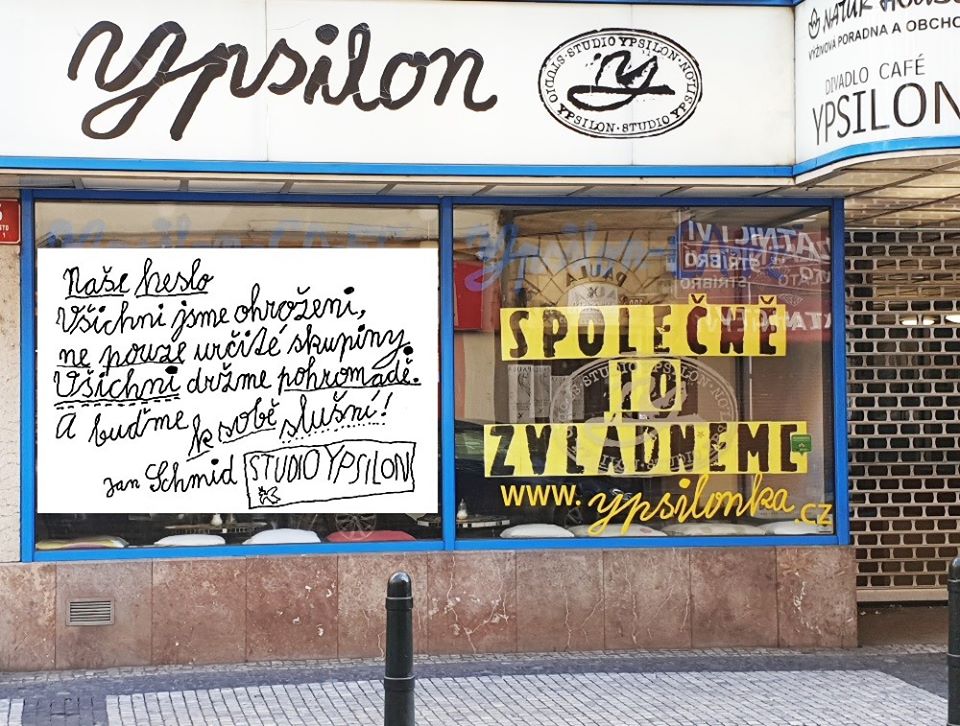 ypsilon
STUDIO YPSILON · STUDIO YPSILON · STUDIO
y
VÝŽIVOVÁ PORADNA A OBCHO
DIVADLO CAFÉ
YPSILON
Naše heslo
Všichni jsme ohroženi,
ne pouze určité skupiny.
Všichni držme pohromadě.
A buďme k sobě slušní!
Jan Schmid STUDIO YPSILON
SPOLEČNĚ
TO
ZVLÁDNEME
www.ypsilonka.cz
STUDIO YPSILON
STŘÍBRO
STŘÍBRO